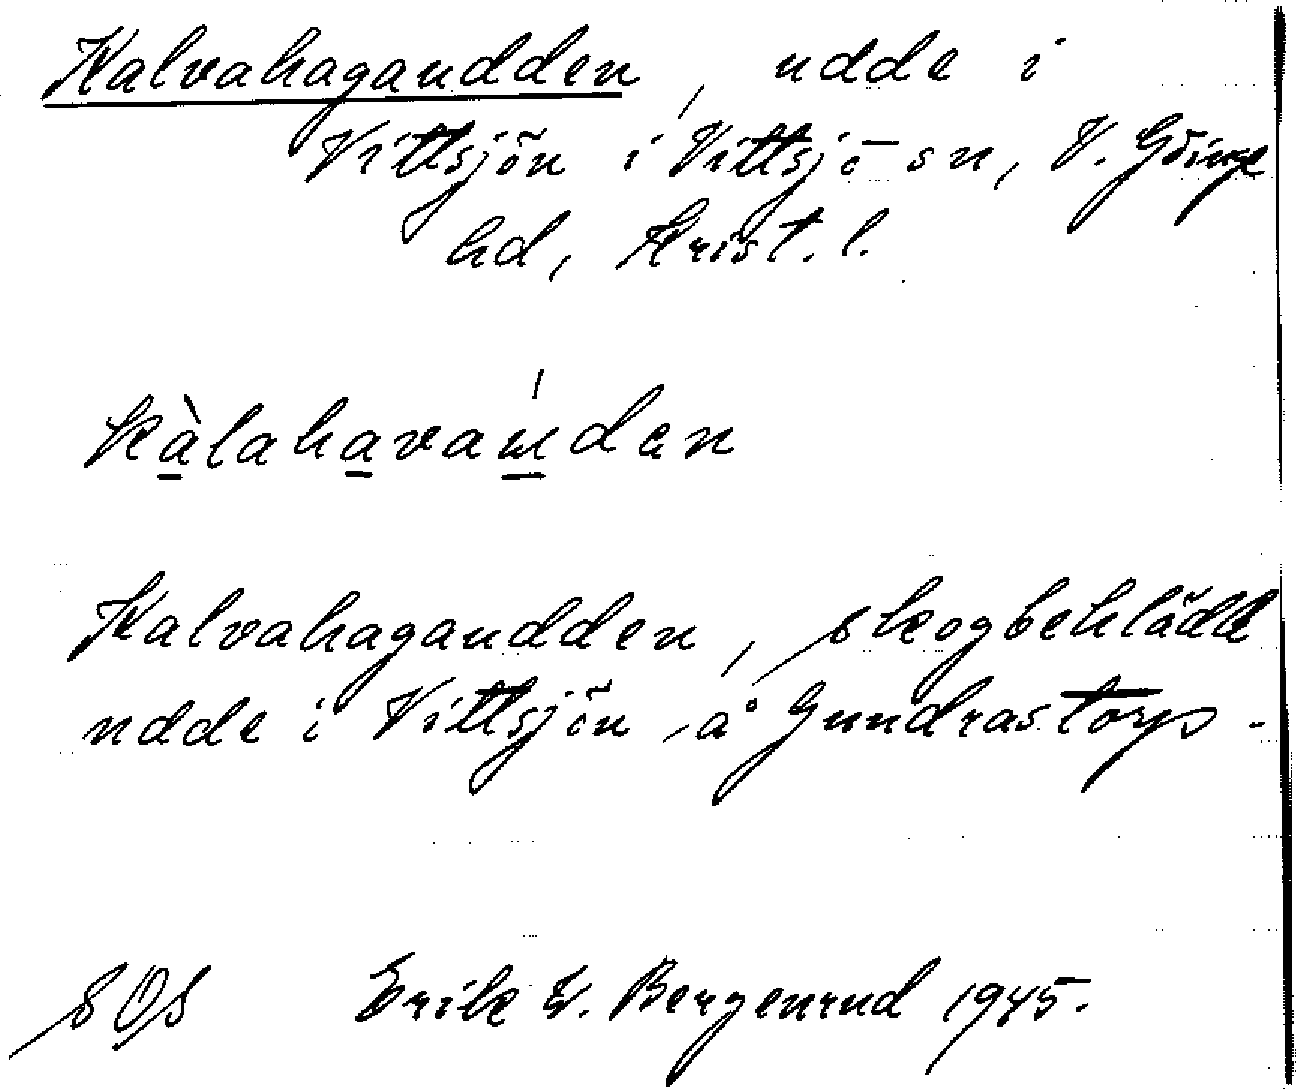 Kalvahagaudden, udde i
Vittsjön i Vittsjö sn, V. Göinge
hd, Krist. l.
Kalvahagaudden, skogbeklädd
udde i Vittsjön å Gundrastorps-
SOS Erik W. Bergenrud 1945.